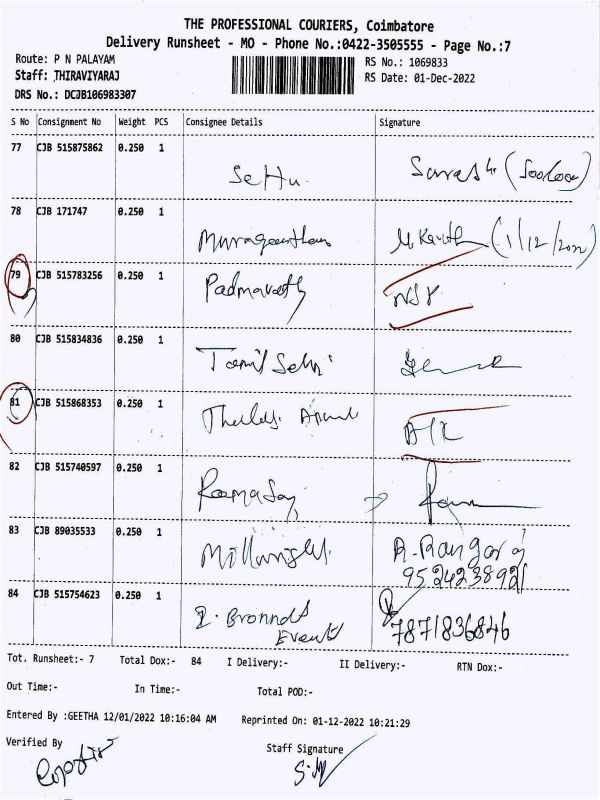 THE PROFESSIONAL COURIERS, Coimbatore
Delivery Runsheet - MO - Phone No.:0422-3505555 - Page No.:7
Route: P N PALAYAM
RS No.: 1069833
Staff: THIRAVIYARAJ
RS Date: 01-Dec-2022
DRS No.: DCJB106983307
S No Consignment No Weight PCS Consignee Details Signature
77 CJB 515875862 0.250 1 Sethu
78 CJB 171747 0.250 1 (1/12/2022)
79 CJB 515783256 0.250 1 Padmavathy
80 CJB 515834836 0.250 1 Tamil Selvi
81 CJB 515868353 0.250 1
82 CJB 515740597 0.250 1 Ramasay
83 CJB 89035533 0.250 1 A. Rangaraj
9524238921
84 CJB 515754623 0.250 1 Events 7871836846
Tot. Runsheet:- 7 Total Dox:- 84 I Delivery:- II Delivery:- RTN Dox:-
Out Time:- In Time:- Total POD:-
Entered By :GEETHA 12/01/2022 10:16:04 AM Reprinted On: 01-12-2022 10:21:29
Verified By Staff Signature